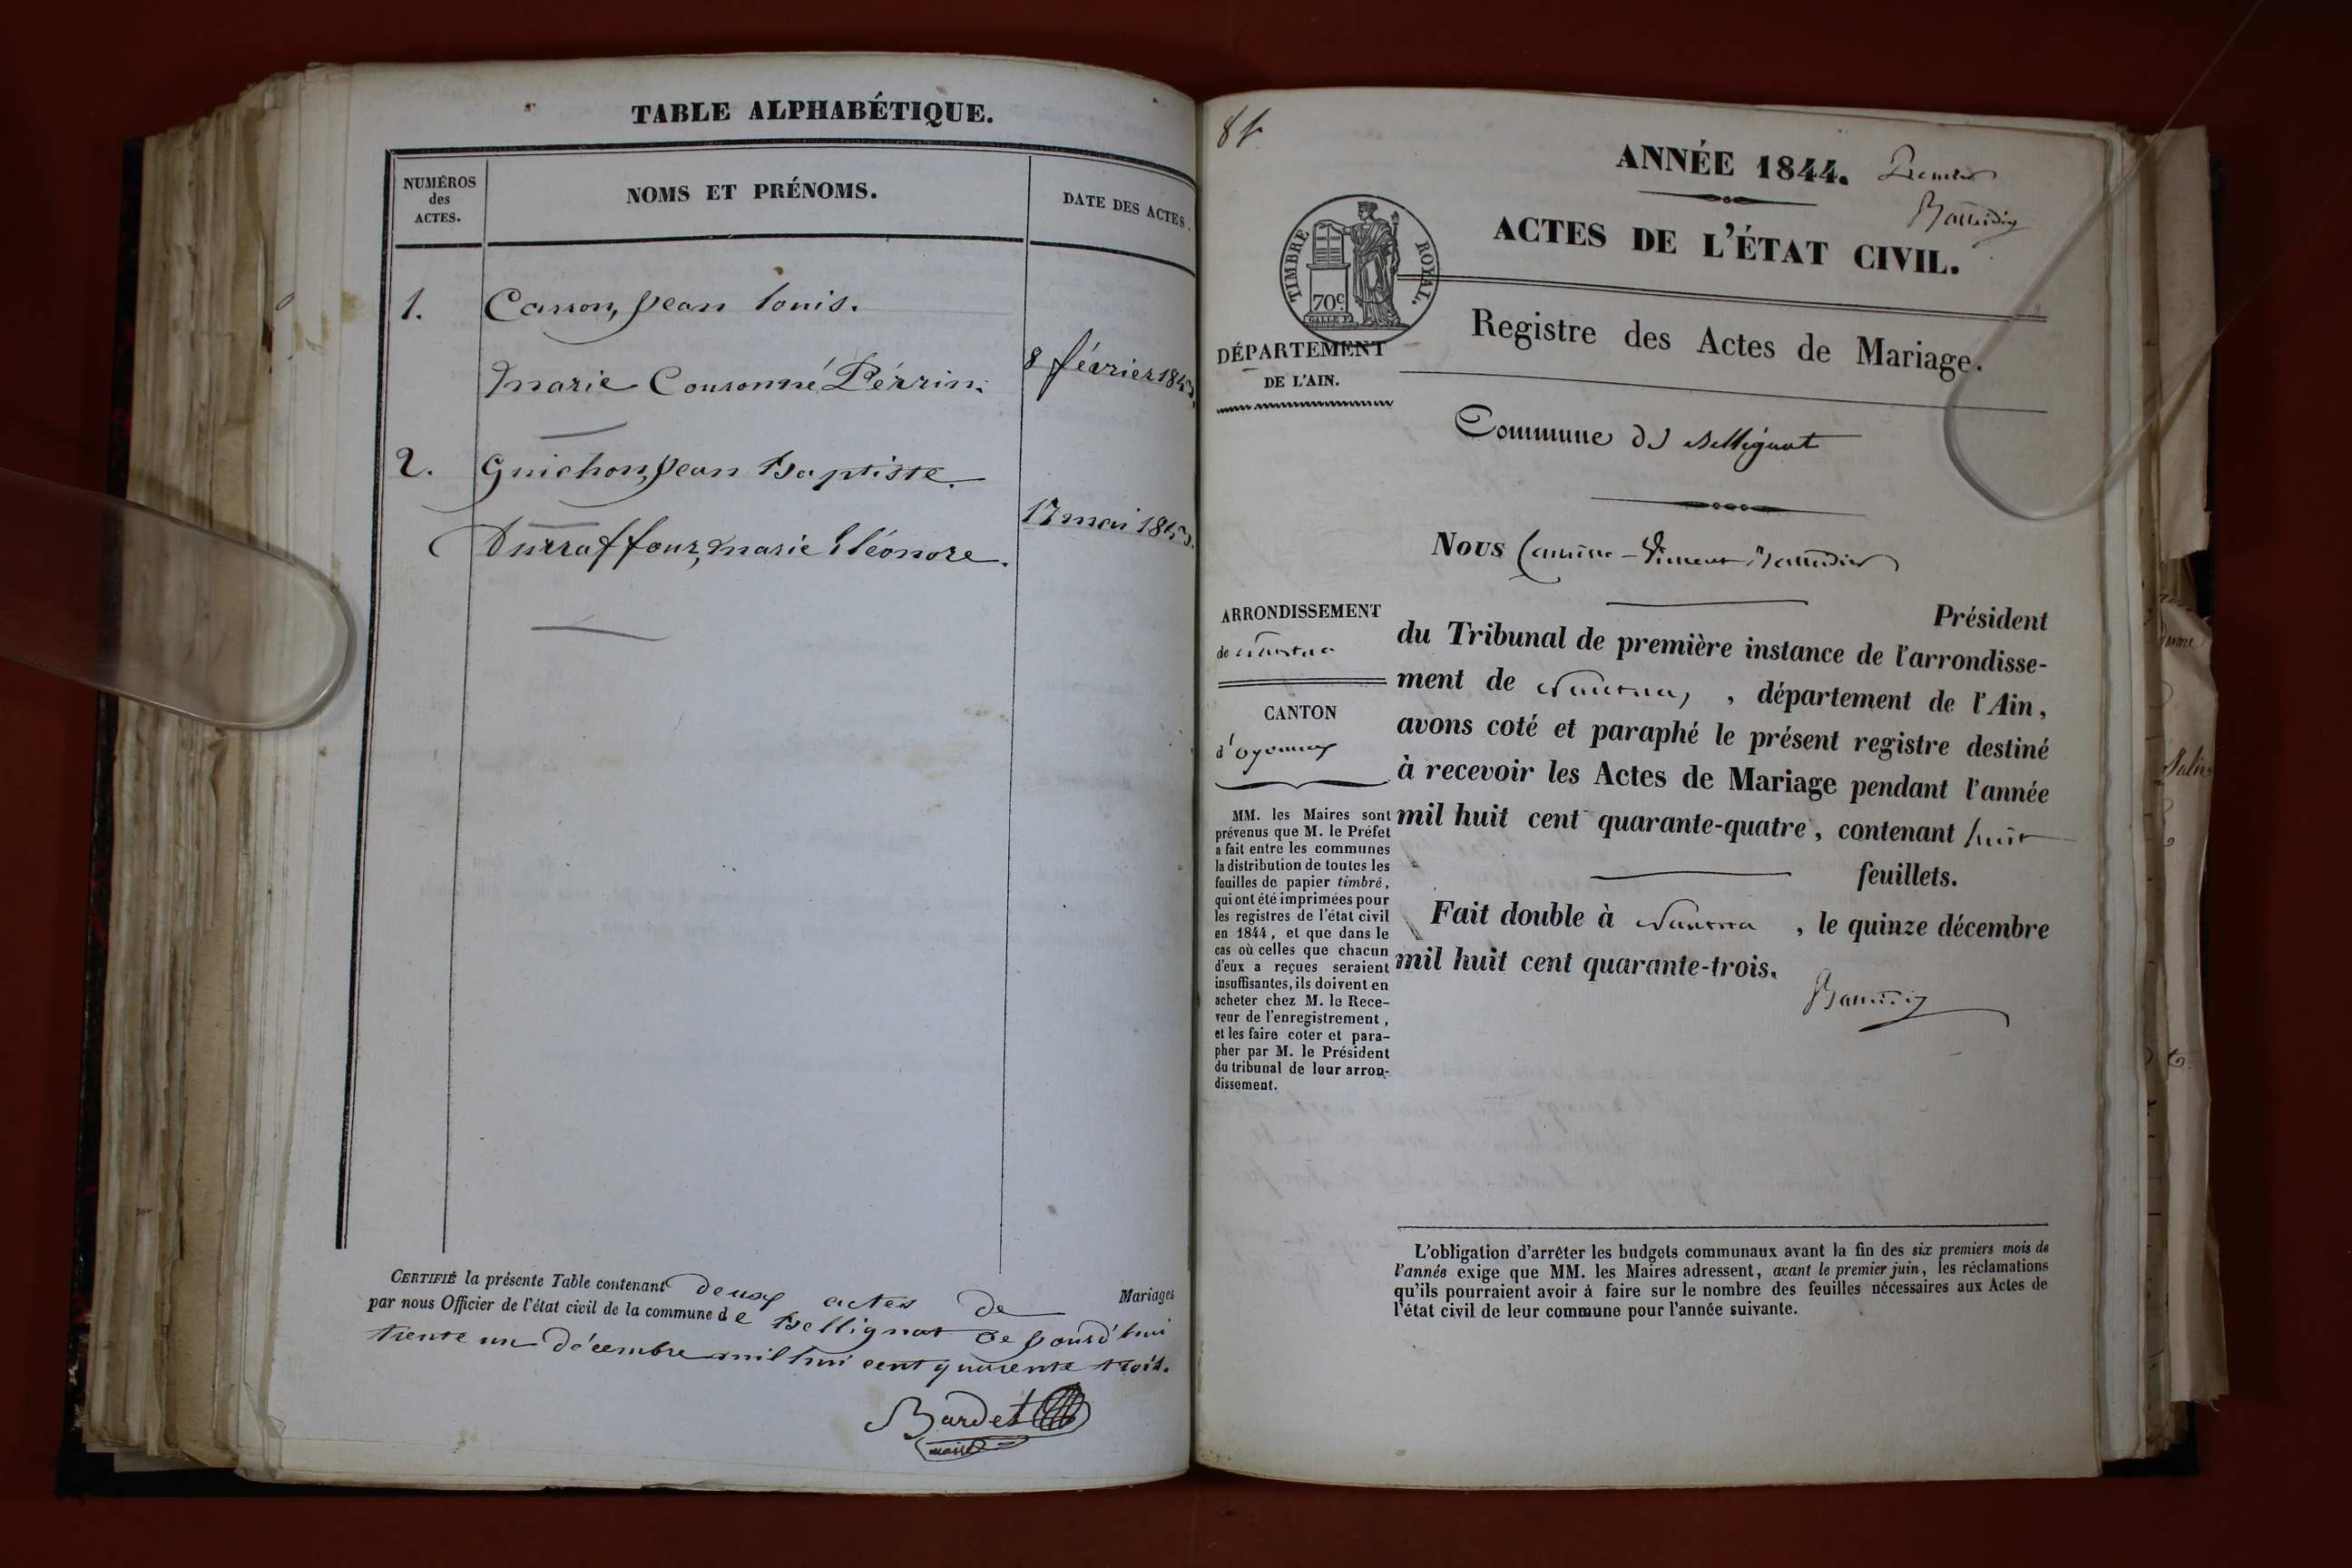 TABLE ALPHABÉTIQUE.
NUMÉROS
des
ACTES.
NOMS ET PRÉNOMS.
DATE DES ACTES.
1. Carron, Jean Louis.
Marie Couronné Pérrin. 8 février 1843.
2. Guichon, Jean Baptiste.
Durraffour, marie Eléonore. 17 mai 1843.
CERTIFIÉ la présente Table contenant deux actes de Mariages
par nous Officier de l'état civil de la commune de Bellignat Ce jourd'hui
trente un décembre mil hui cent quarente trois.
Bardet
maire
ANNÉE 1844. Premier
ACTES DE L'ÉTAT CIVIL.
TIMBRE ROYAL.
70c.
Registre des Actes de Mariage.
DÉPARTEMENT
DE L'AIN.
Commune de Bellignat
Nous
Président
du Tribunal de première instance de l'arrondisse-
ment de Nantua, département de l'Ain,
avons coté et paraphé le présent registre destiné
à recevoir les Actes de Mariage pendant l'année
mil huit cent quarante-quatre, contenant huit
feuillets.
Fait double à Nantua, le quinze décembre
mil huit cent quarante-trois.
ARRONDISSEMENT
de Nantua
CANTON
d'Oyonnax
MM. les Maires sont
prévenus que M. le Préfet
a fait entre les communes
la distribution de toutes les
feuilles de papier timbré,
qui ont été imprimées pour
les registres de l'état civil
en 1844, et que dans le
cas où celles que chacun
d'eux a reçues seraient
insuffisantes, ils doivent en
acheter chez M. le Rece-
veur de l'enregistrement,
et les faire coter et para-
pher par M. le Président
du tribunal de leur arron-
dissement.
L'obligation d'arrêter les budgets communaux avant la fin des six premiers mois de
l'année exige que MM. les Maires adressent, avant le premier juin, les réclamations
qu'ils pourraient avoir à faire sur le nombre des feuilles nécessaires aux Actes de
l'état civil de leur commune pour l'année suivante.